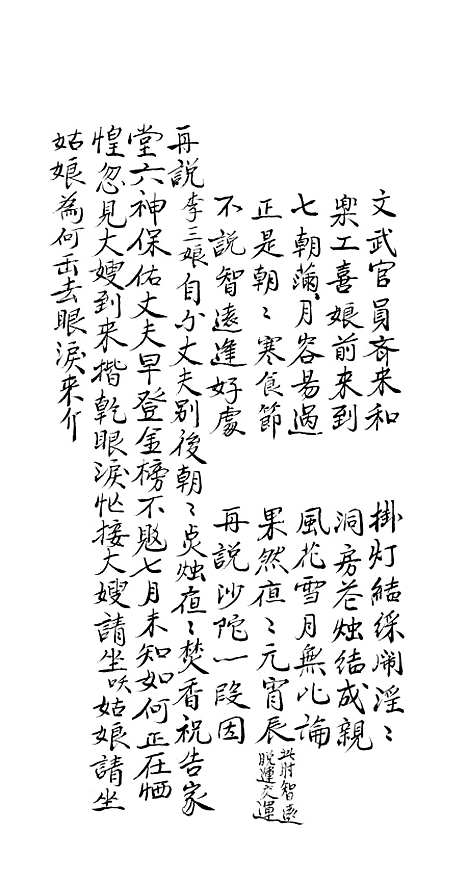 文武官員齐来和 掛灯結綵闹淫〻
樂工喜娘前来到 洞房花烛結成親
七朝满月容易過 風花雪月無心論
正是朝〻寒食節 果然夜〻元宵辰 此时智远
脱運交運
不說智遠逢好處 再說沙陀一段因
再說李三娘自分丈夫别後朝〻点烛夜〻焚香祝告家
堂六神保佑丈夫早登金榜不覚七月未知如何正在恓
惶忽見大嫂到来揩乾眼淚忙接大嫂請坐 吷 姑娘請坐
姑娘為何面去眼淚来介